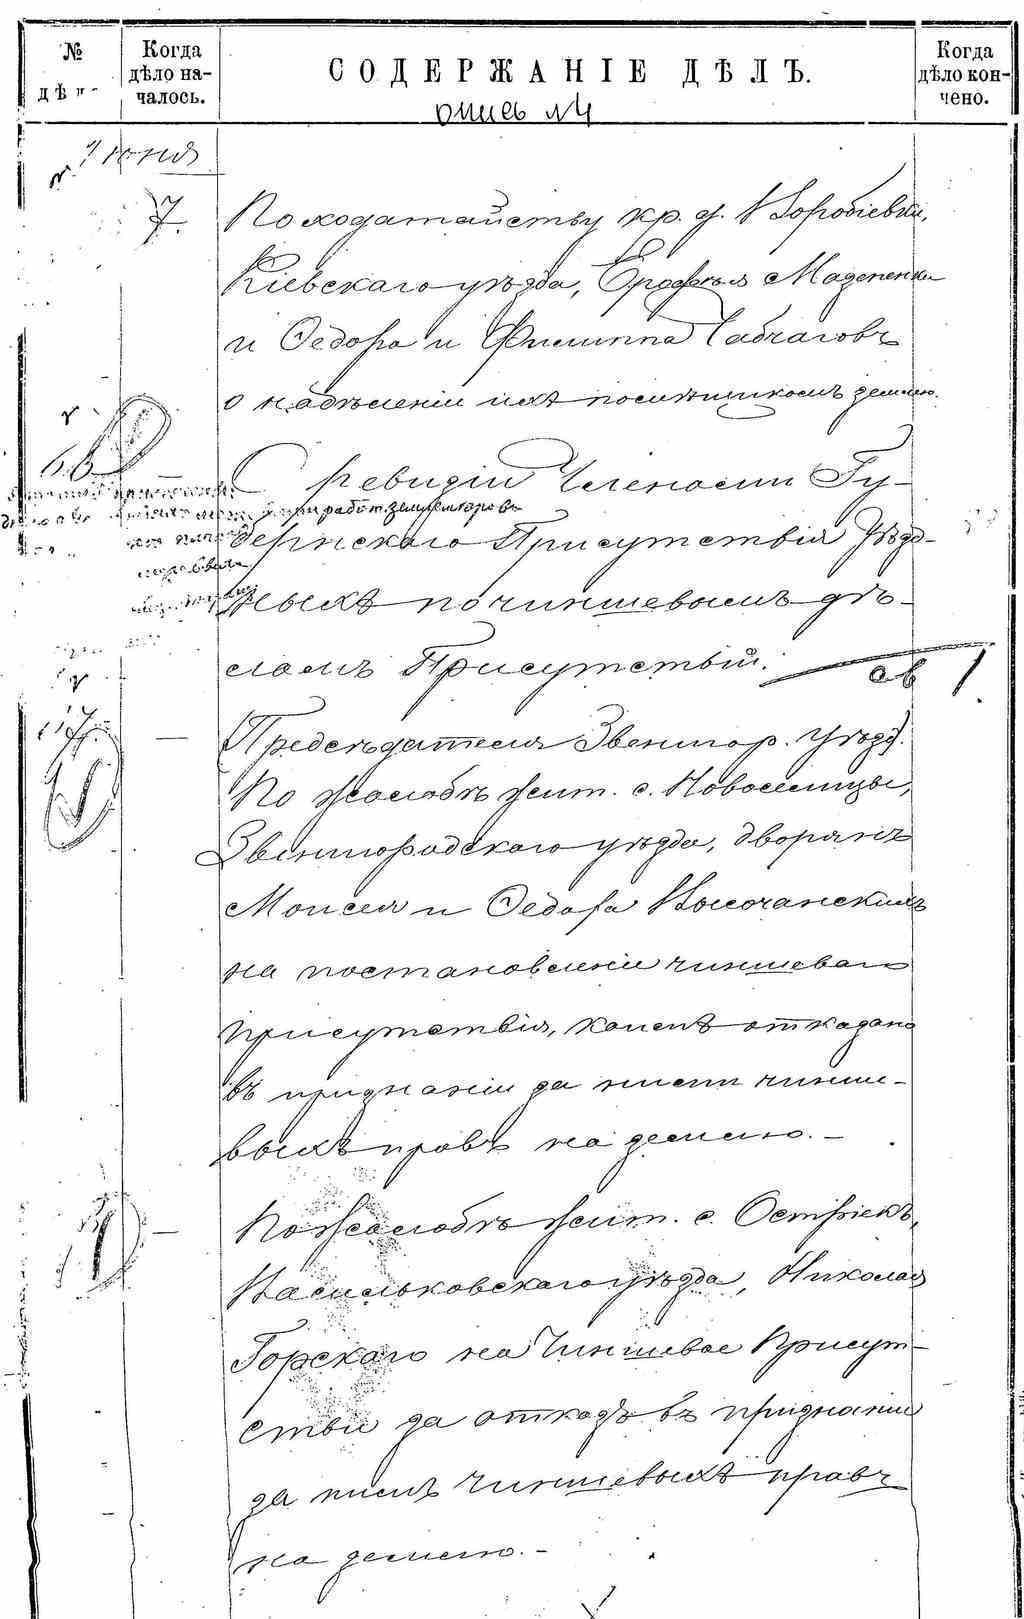 № дѣ
Когда дѣло началось.
СОДЕРЖАНІЕ ДѢЛЪ.
Когда дѣло кончено.
опись №4
Июня
7. По ходатайству кр. д. Воробіевки,
Кіевскаго уѣзда, Ерофѣя
и Ѳедора и Филиппа
о надѣленіи ихъ помѣщикомъ землею.
О ревизіи Членами Гу-
и работ. землемѣровъ
бернскаго Присутствія Уѣзд-
ныхъ по чиншевымъ дѣ-
ламъ Присутствій. св 1
17. — (Предсѣдателя Звенигор. Уѣзд).
По жалобѣ жит. с. Новоселицы,
Звенигородскаго уѣзда, дворянъ
Моисея и Ѳедора Высочанскихъ
на постановленіе чиншеваго
присутствія, коимъ отказано
въ признаніи за ними чинше-
выхъ правъ на землю. —
— По жалобѣ жит. с. Острiекъ,
Васильковскаго уѣзда, Николая
Горскаго на Чиншевое Присут-
ствіе за отказъ въ признаніи
за нимъ чиншевыхъ правъ
на землю. —